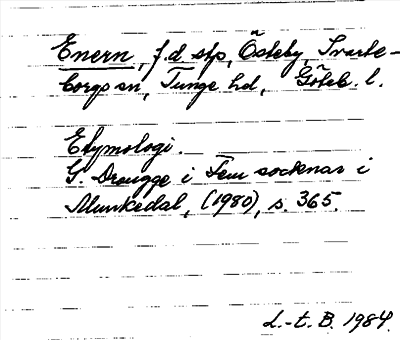 Enern, f.d. stp, Österby, Svarte-
borgs sn, Tunge hd, Göteb. l.
Etymologi.
G. Drougge i Fem socknar i
Munkedal, (1980), s. 365.
L.-t. B. 1984.